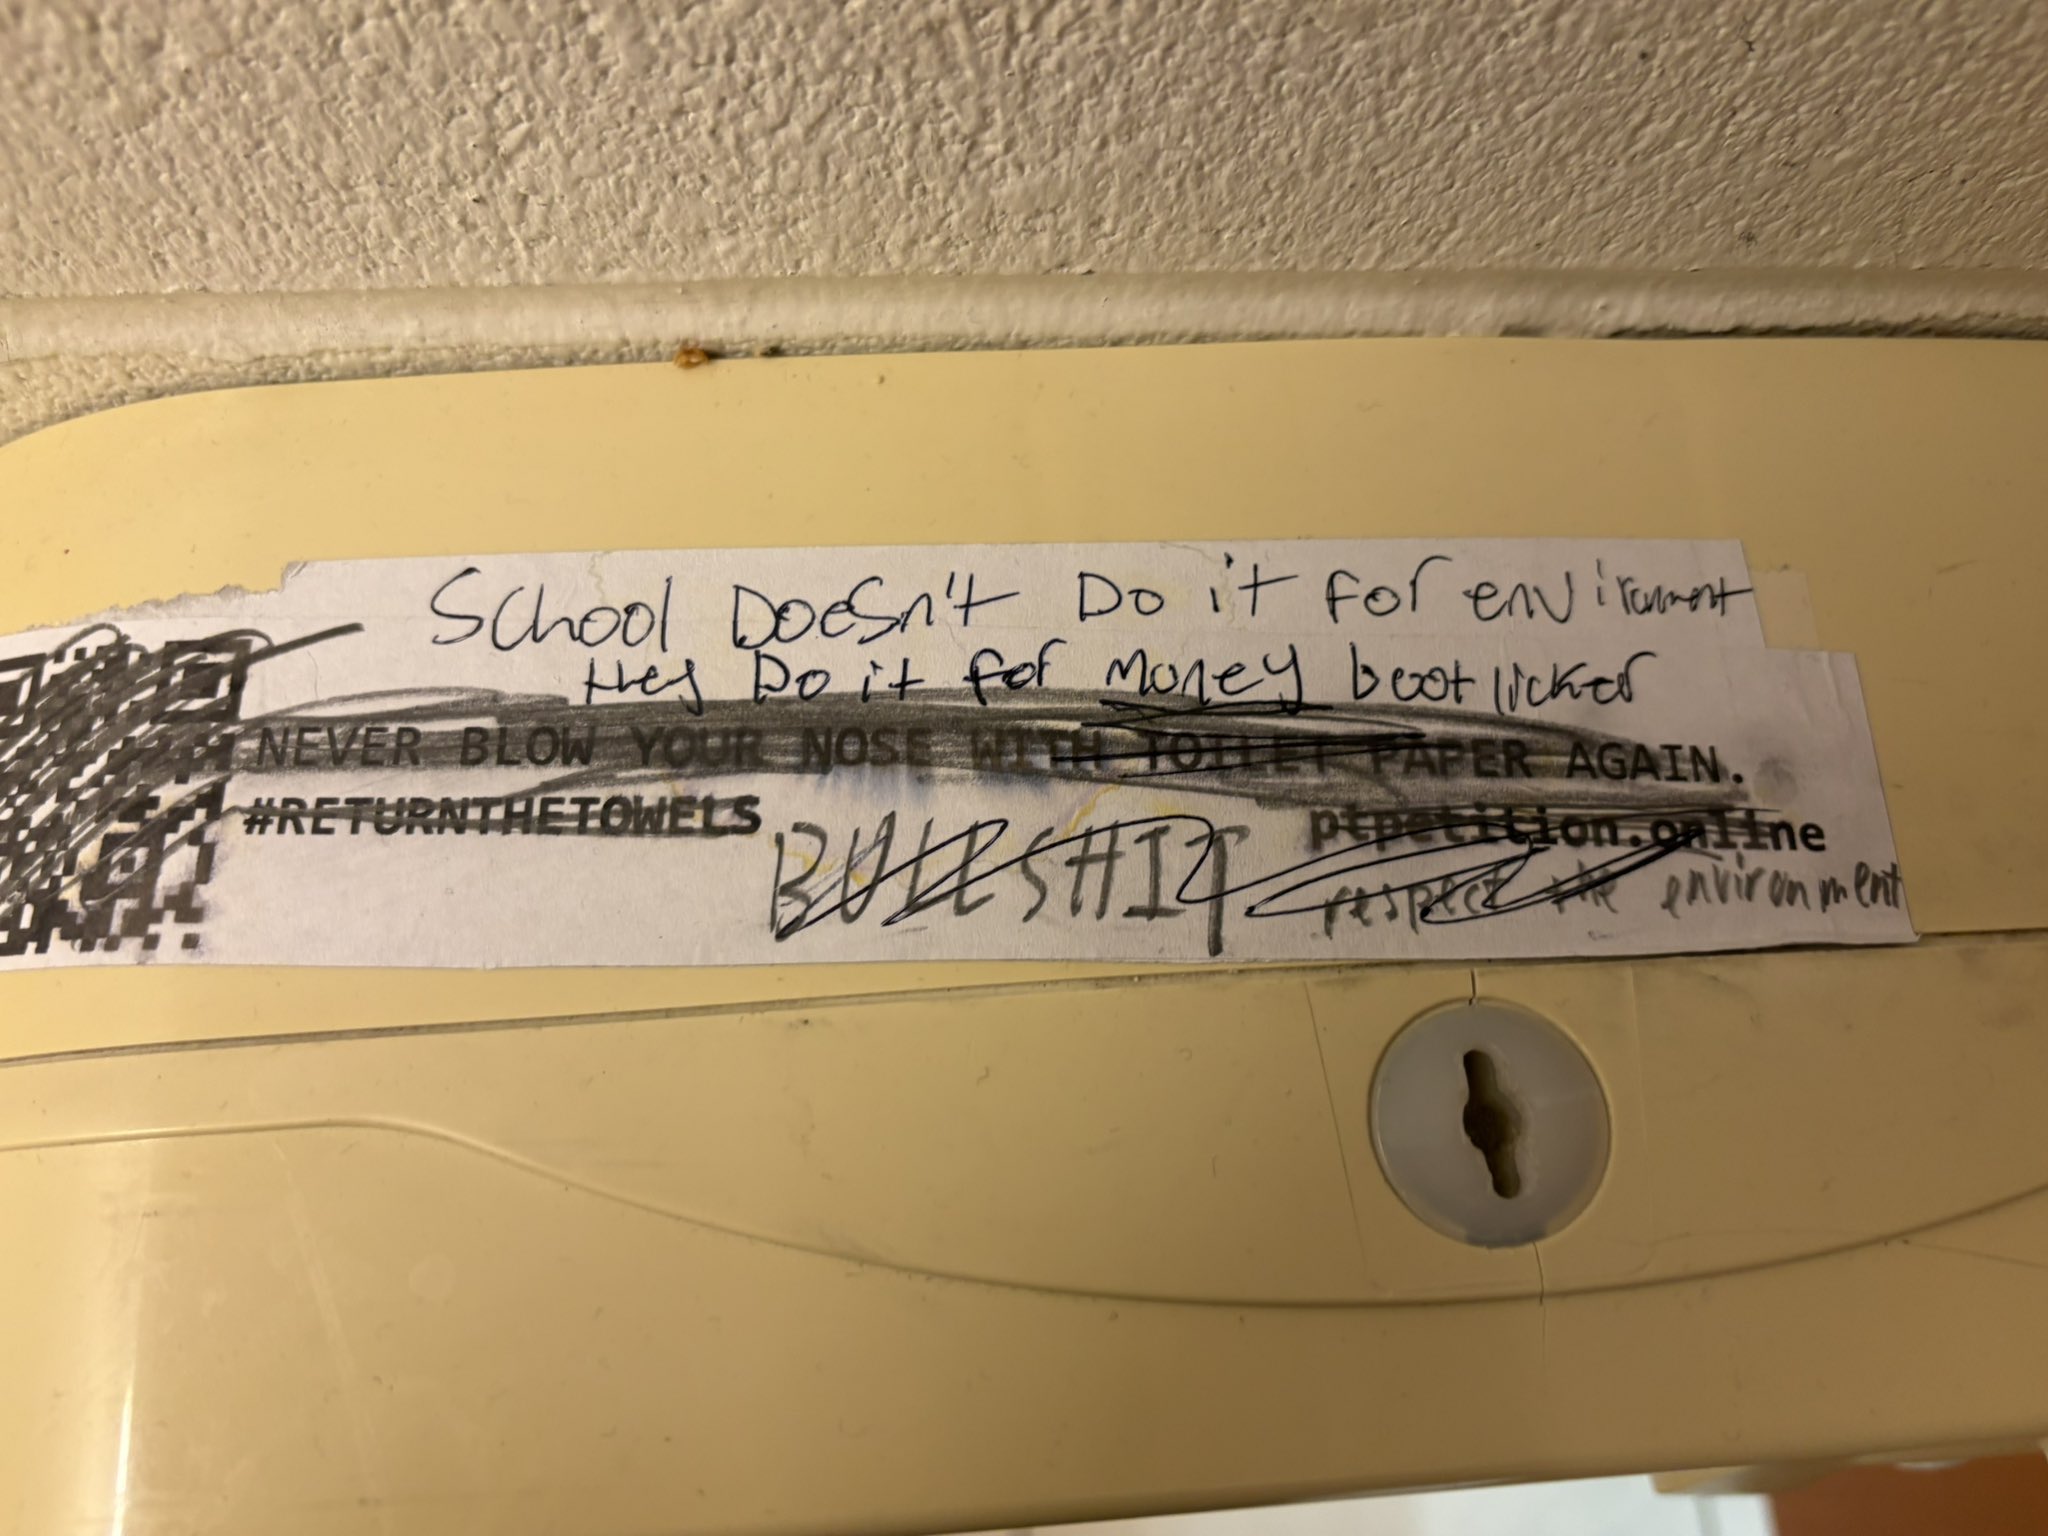 School Doesn't Do it for environment
they Do it for money boot licker
NEVER BLOW YOUR NOSE WITH TOILET PAPER AGAIN.
#RETURNTHETOWELS
ptpetition.online
BULLSHIT
respect the environment